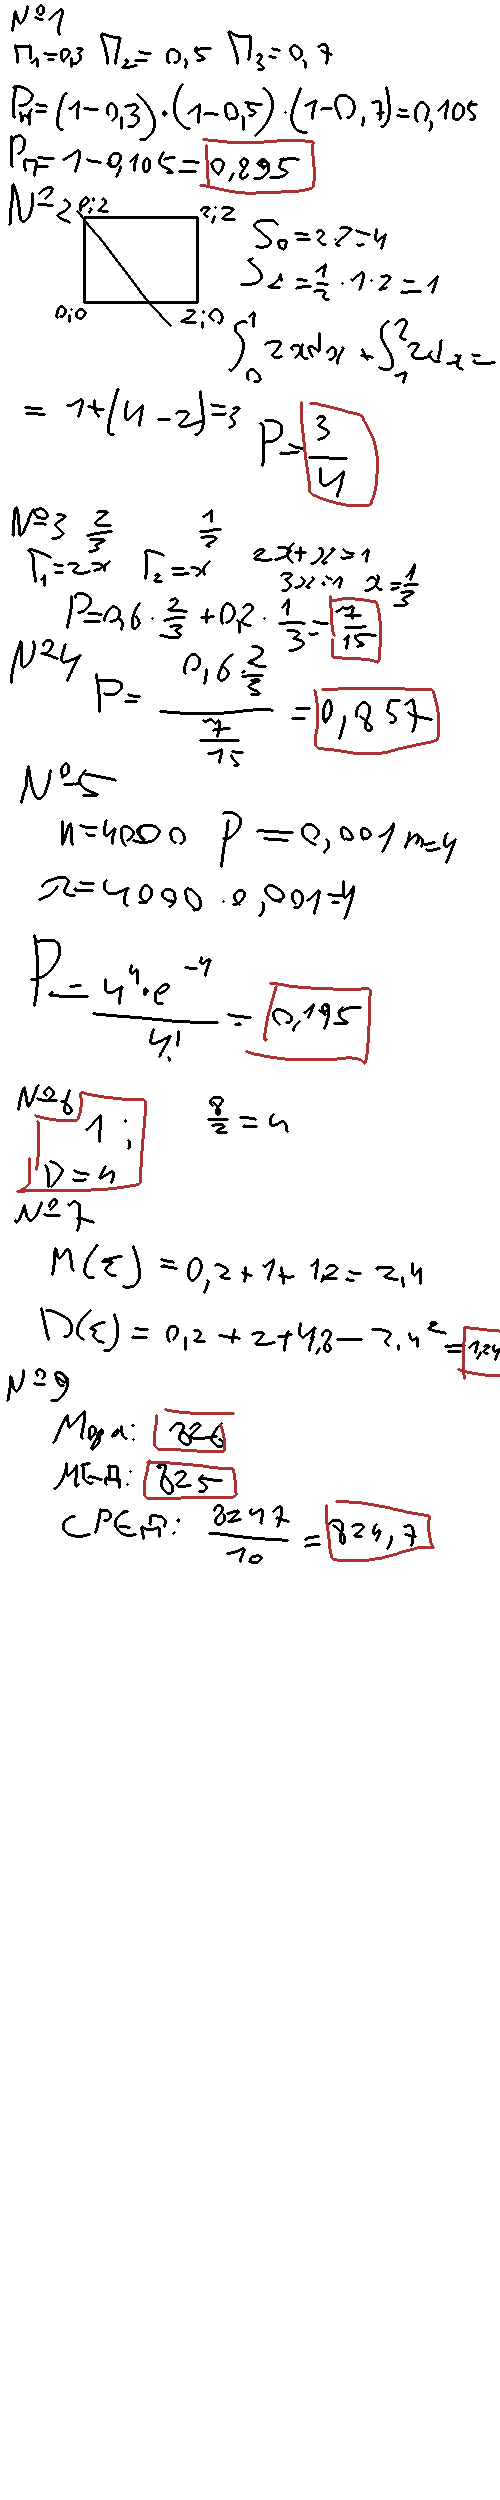 №1
П₁=0,3 П₂=0,5 П₃=0,7
Pн=(1-0,3)·(1-0,5)·(1-0,7)=0,105
Pп=1-0,105=0,895
№2
0;2 2;2
0;0 2;0
S₀=2·2=4
S₁=1/2·1·2=1
∫₀¹ 2xdx + ∫₁² 2dx=
= 1+(4-2)=3
P=3/4
№3 2/3 1/3
Г₁=2x Г₂=x 2x+x=1
3x=1 x=1/3
P=0,6·2/3+0,2·1/3=7/15
№4
P=(0,6·2/3)/(7/15)=0,857
№5
n=4000 p=0,001 m=4
λ=4000·0,001=4
P=4⁴·e⁻⁴/4!=0,195
№6
1; 8/2=4
D=4
№7
M(ξ)=0,2+1+1,2=2,4
D(ξ)=0,2+2+4,8-2,4²=1,24
№9
Мода: 826
МЕД: 825
СРЕД: 8247/10=824,7